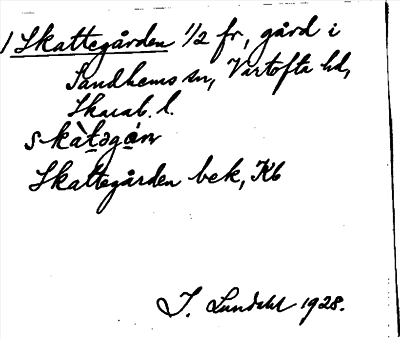 1 Skattegården 1/2 fr, gård i
Sandhems sn, Vartofta hd,
Skarab. l.
skàtəgán
Skattegården bek, Kb
I. Lundahl 1928.